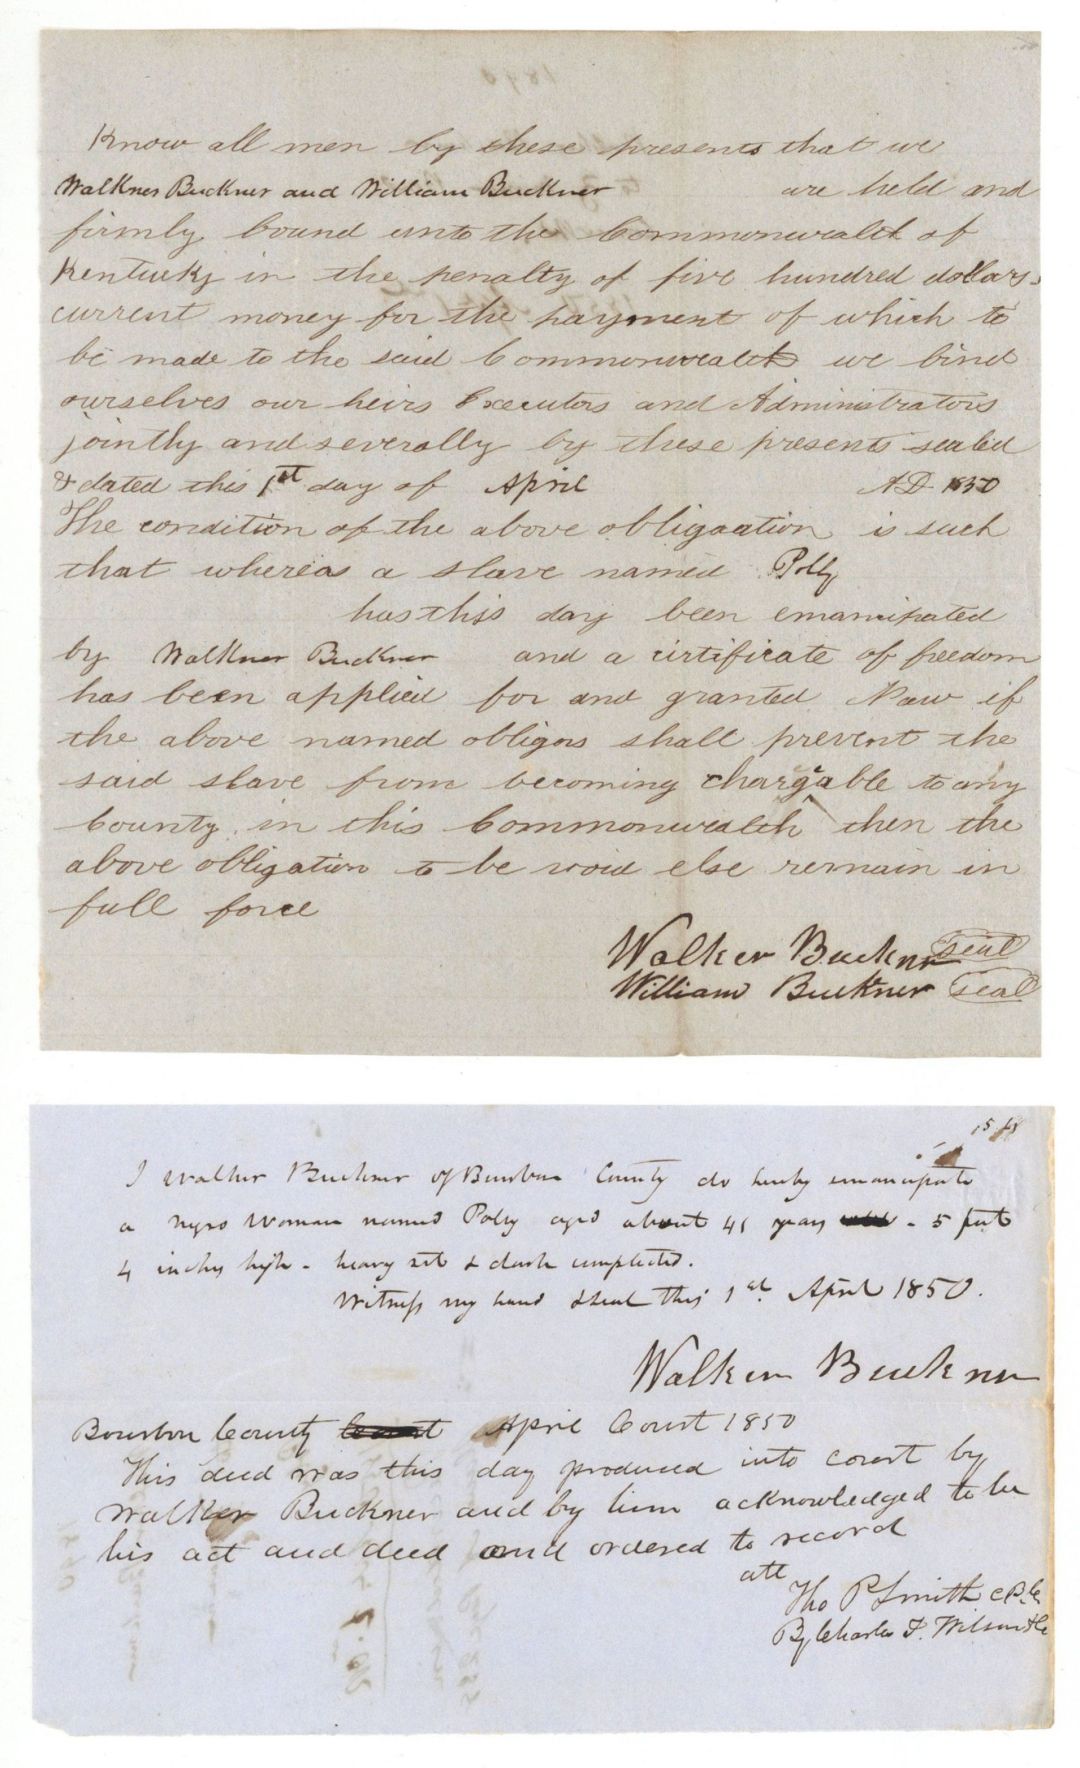 Know all men by these presents that we
Walkner Buckner and William Buckner are held and
firmly bound unto the Commonwealth of
Kentucky in the penalty of five hundred dollars
current money for the payment of which to
be made to the said Commonwealth we bind
ourselves our heirs Executors and Administrators
jointly and severally by these presents sealed
& dated this 1st day of April AD 1850
The condition of the above obligaation is such
that whereas a slave named Polly
has this day been emancipated
by Walkner Buckner and a cirtificate of freedom
has been applied for and granted Now if
the above named obligors shall prevent the
said slave from becoming chargeable to any
County in this Commonwealth then the
above obligation to be void else remain in
full force
Walker Buckner seal
William Buckner seal
I Walker Buckner of Bourbon County do hereby emancipate
a negro Woman named Polly aged about 41 years - 5 feet
4 inches high - heavy set & dark complected.
Witness my hand & seal this 1st April 1850.
Walker Buckner
Bourbon County April Court 1850
This deed was this day produced into court by
Walker Buckner and by him acknowledged to be
his act and deed and ordered to record
att
Tho P Smith C.B.C.
By Charles F. Wilson